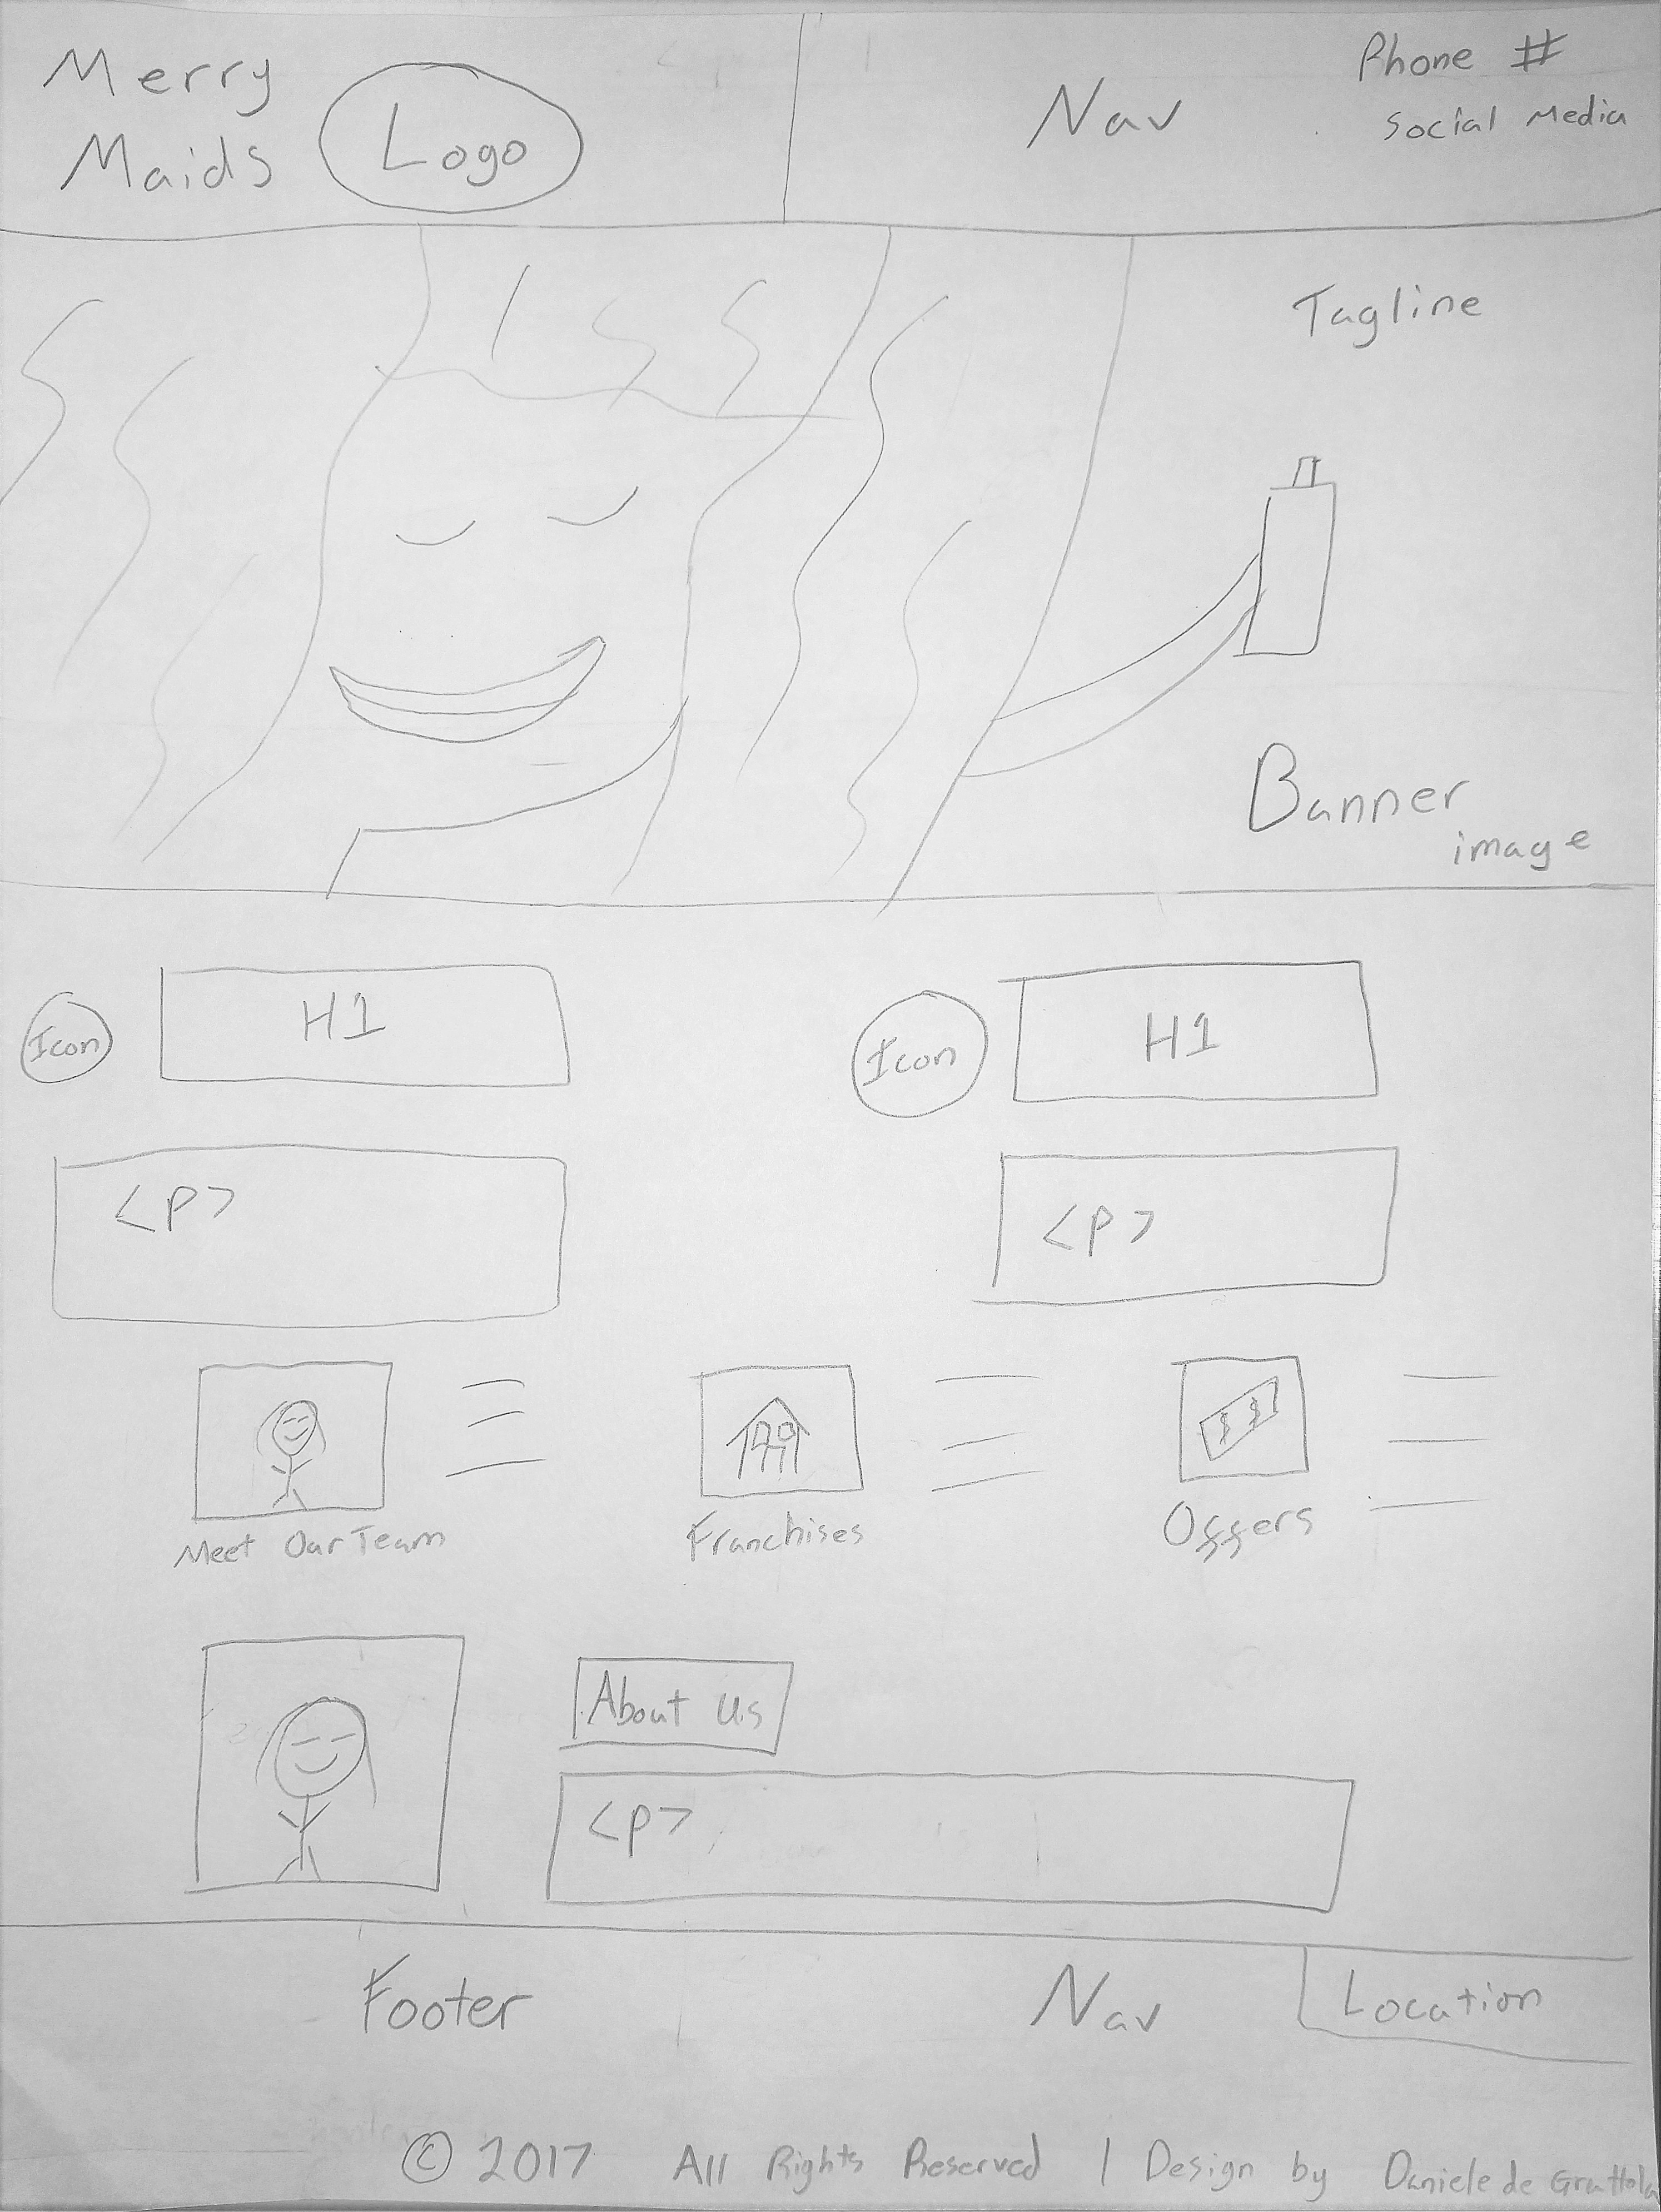 Merry
Maids
Logo
Nav
Phone #
Social Media
Tagline
Banner
image
Icon
H1
Icon
H1
<P>
<P>
$ $
Meet Our Team
Franchises
Offers
About Us
<P>
Footer
Nav
Location
© 2017 All Rights Reserved | Design by Daniele de Grattola